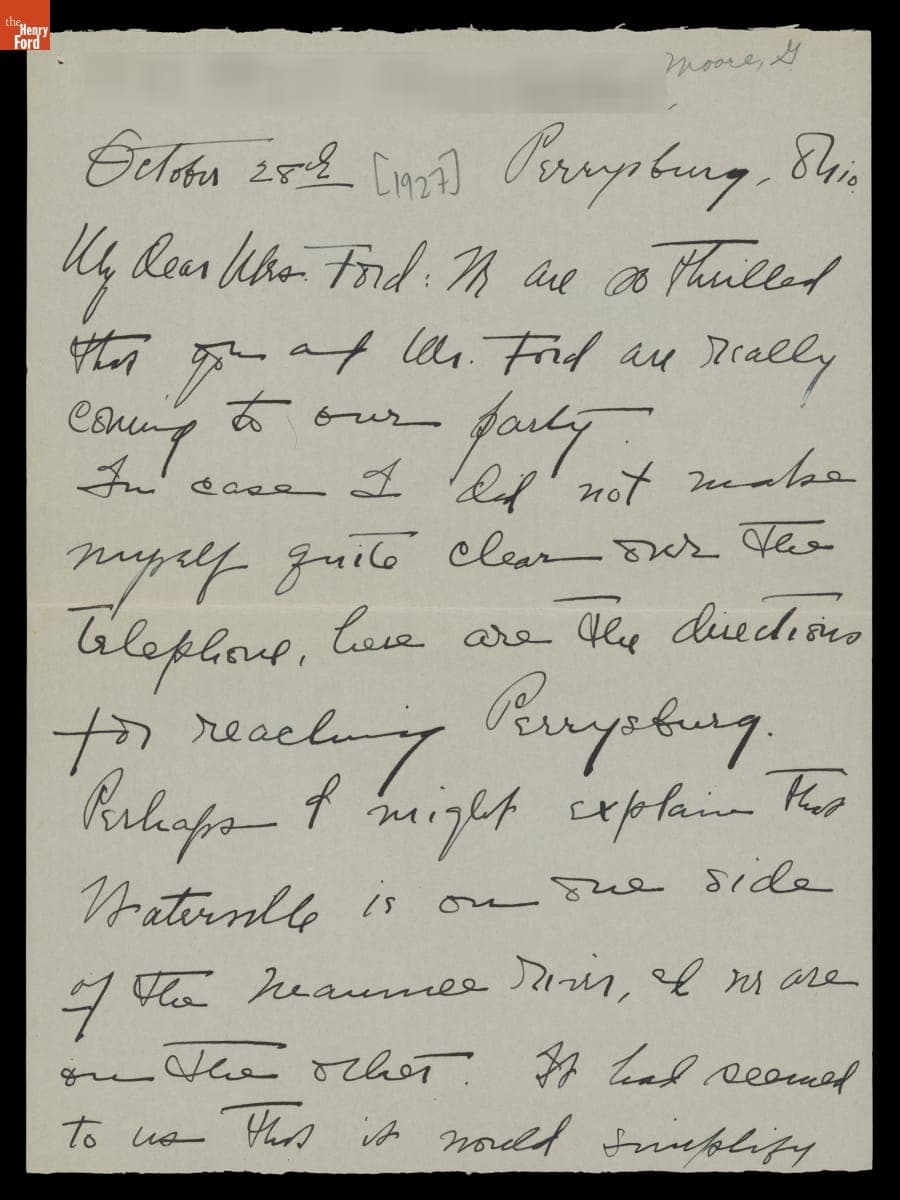 the
Henry
Ford
Moore, G
October 28th [1927] Perrysburg, Ohio.
My dear Mrs. Ford: We are so thrilled
that you and Mr. Ford are really
coming to our party.
In case I did not make
myself quite clear over the
telephone, here are the directions
for reaching Perrysburg.
Perhaps I might explain that
Waterville is on one side
of the Maumee River, & we are
on the other. It had seemed
to us that it would simplify